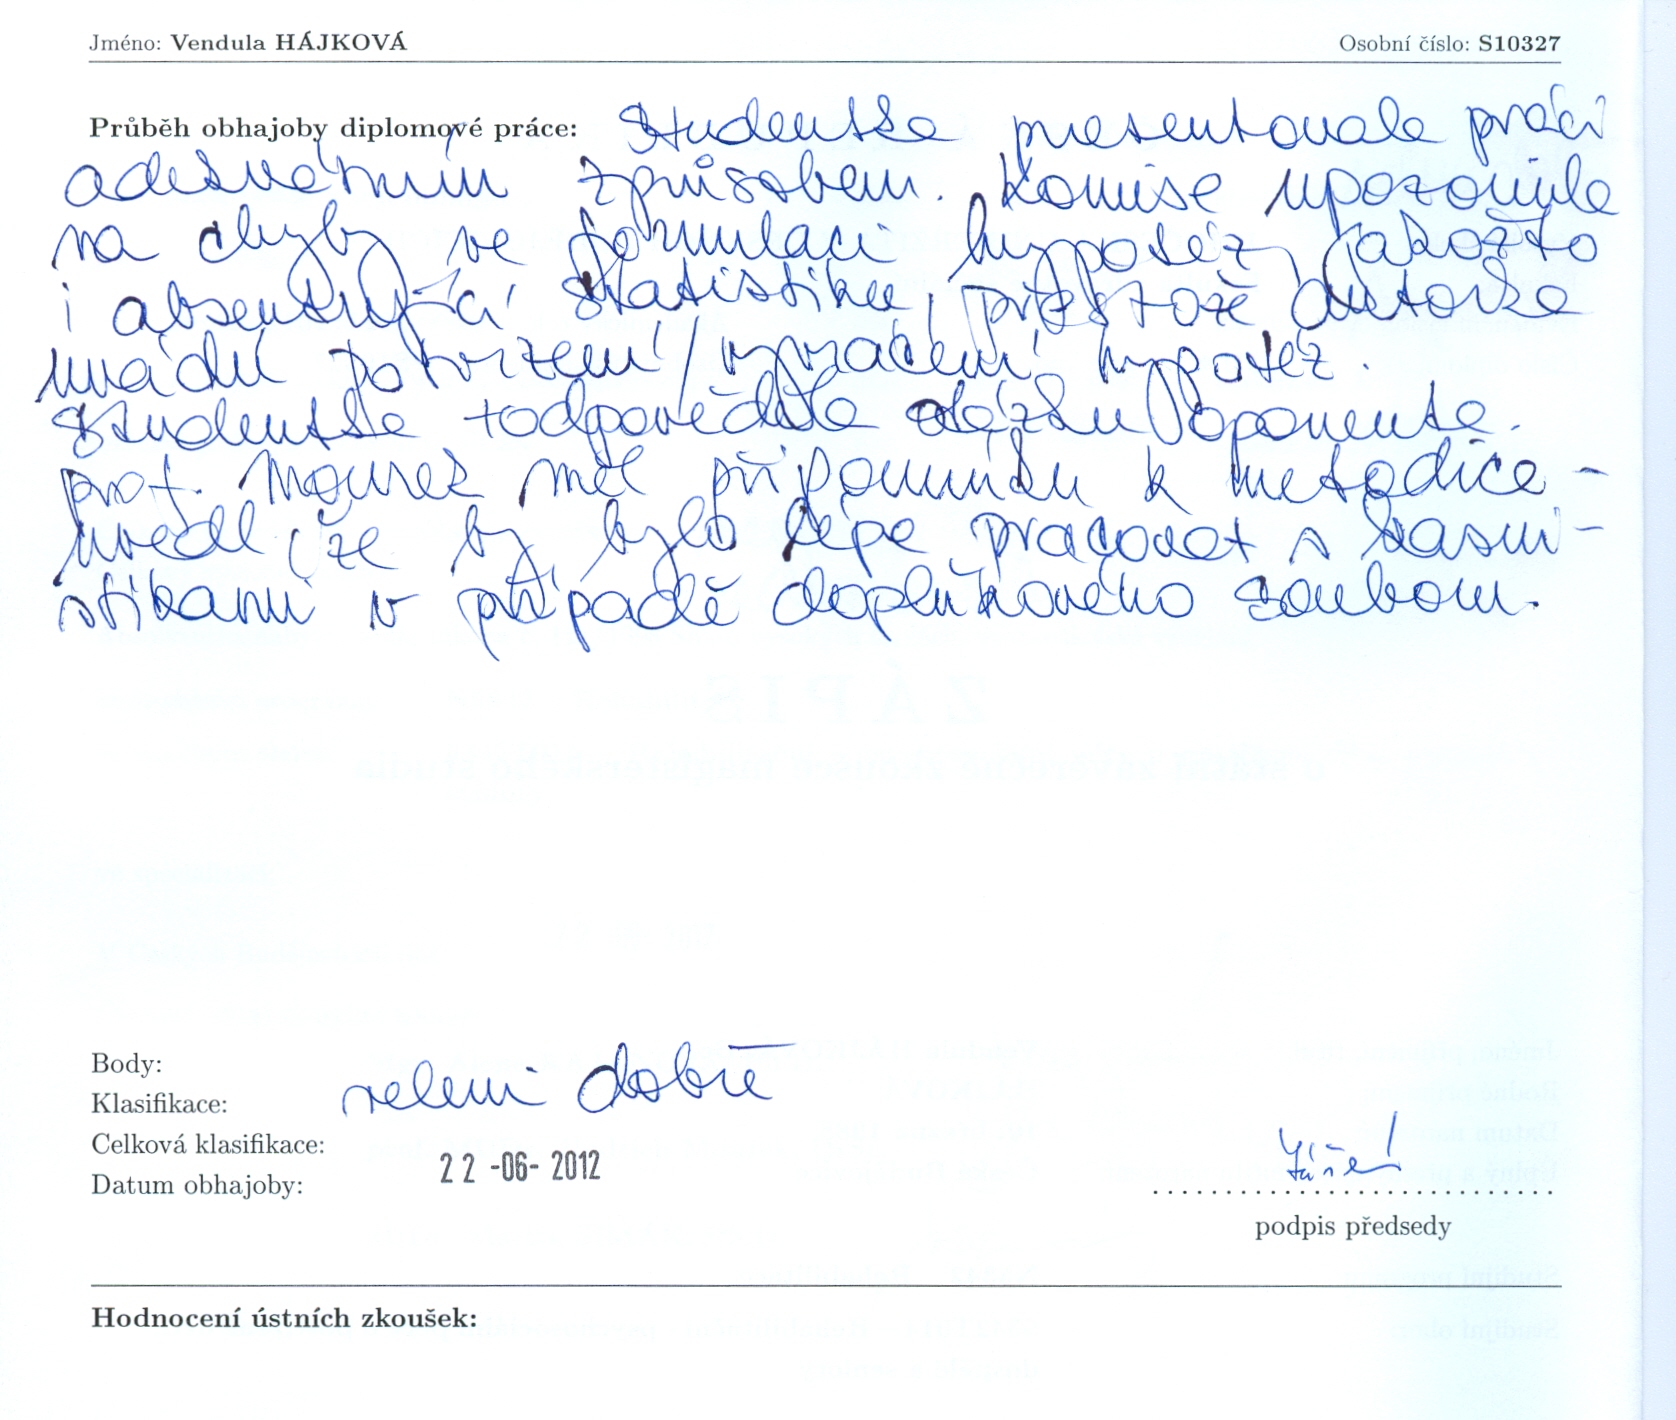 Jméno: Vendula HÁJKOVÁ Osobní číslo: S10327
Průběh obhajoby diplomové práce: Studentka presentovala práci
adekvátním způsobem. Komise upozornila
na chyby ve formulaci hypotéz, jakožto
i absentující statistiku, přestože autorka
uvádí potvrzení/vyvrácení hypotéz.
Studentka zodpověděla otázku oponenta.
prof. Mourek měl připomínku k metodice -
uvedl, že by bylo lépe pracovat s kasui-
stikami v případě doplňkového souboru.
ZÁPIS
o státní závěrečné zkoušce magisterského studia
Body:
Klasifikace: velmi dobře
Celková klasifikace:
Datum obhajoby: 22 -06- 2012
podpis předsedy
Hodnocení ústních zkoušek: